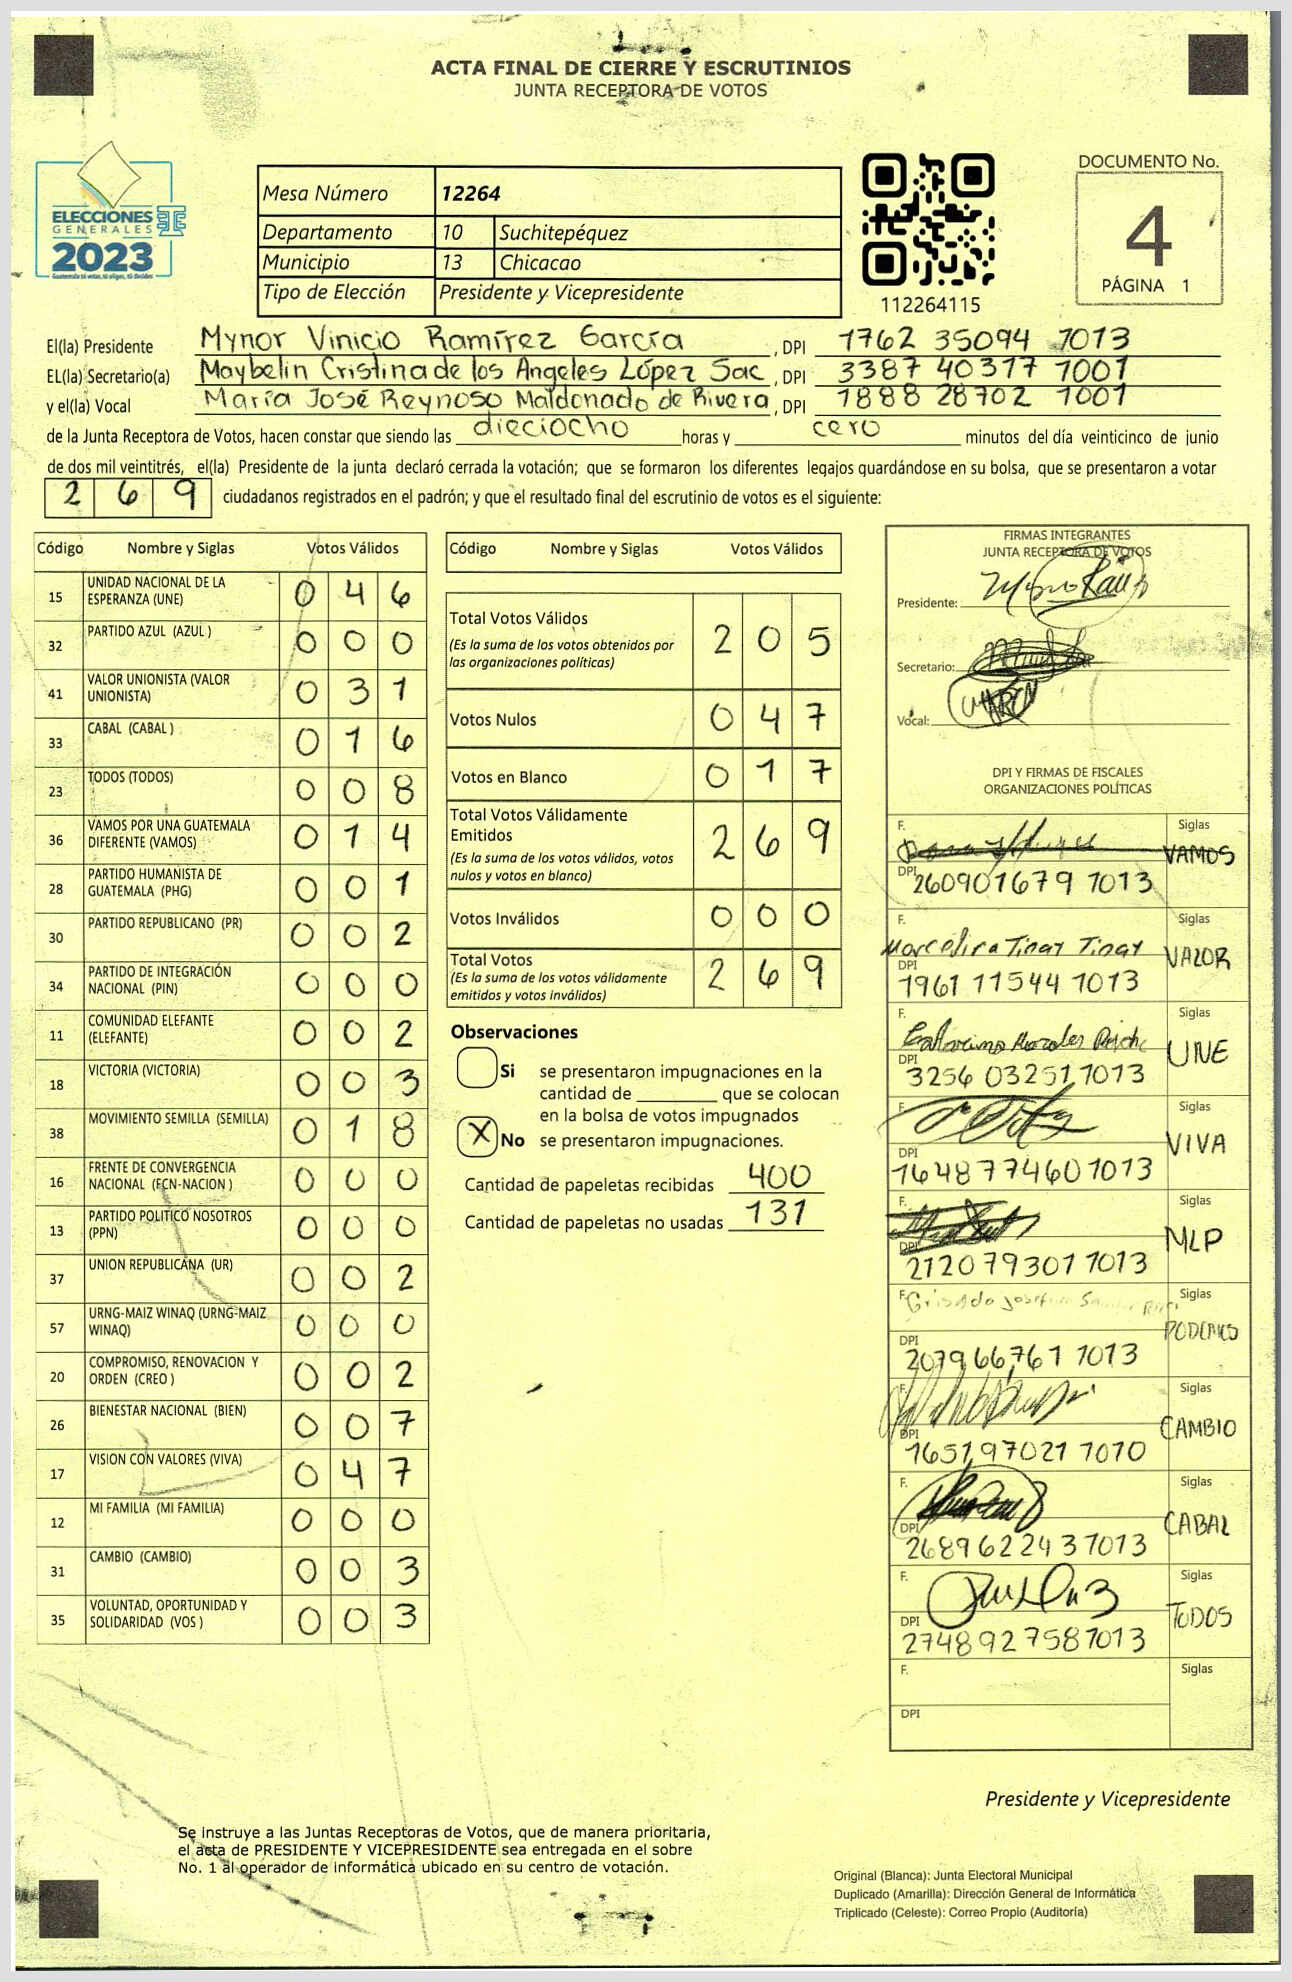 ACTA FINAL DE CIERRE Y ESCRUTINIOS
JUNTA RECEPTORA DE VOTOS
ELECCIONES
GENERALES
2023
Guatemala tú votas, tú eliges, tú decides
Mesa Número 12264
Departamento 10 Suchitepéquez
Municipio 13 Chicacao
Tipo de Elección Presidente y Vicepresidente
112264115
DOCUMENTO No.
4
PÁGINA 1
El(la) Presidente Mynor Vinicio Ramírez García, DPI 1762 35094 1013
EL(la) Secretario(a) Maybelin Cristina de los Angeles López Sac, DPI 3387 40317 1001
y el(la) Vocal María José Reynoso Maldonado de Rivera, DPI 1888 28702 1001
de la Junta Receptora de Votos, hacen constar que siendo las dieciocho horas y cero minutos del día veinticinco de junio
de dos mil veintitrés, el(la) Presidente de la junta declaró cerrada la votación; que se formaron los diferentes legajos guardándose en su bolsa, que se presentaron a votar
269 ciudadanos registrados en el padrón; y que el resultado final del escrutinio de votos es el siguiente:
Código Nombre y Siglas Votos Válidos
15 UNIDAD NACIONAL DE LA ESPERANZA (UNE) 046
32 PARTIDO AZUL (AZUL ) 000
41 VALOR UNIONISTA (VALOR UNIONISTA) 031
33 CABAL (CABAL ) 016
23 TODOS (TODOS) 008
36 VAMOS POR UNA GUATEMALA DIFERENTE (VAMOS) 014
28 PARTIDO HUMANISTA DE GUATEMALA (PHG) 001
30 PARTIDO REPUBLICANO (PR) 002
34 PARTIDO DE INTEGRACIÓN NACIONAL (PIN) 000
11 COMUNIDAD ELEFANTE (ELEFANTE) 002
18 VICTORIA (VICTORIA) 003
38 MOVIMIENTO SEMILLA (SEMILLA) 018
16 FRENTE DE CONVERGENCIA NACIONAL (FCN-NACION ) 000
13 PARTIDO POLITICO NOSOTROS (PPN) 000
37 UNION REPUBLICANA (UR) 002
57 URNG-MAIZ WINAQ (URNG-MAIZ WINAQ) 000
20 COMPROMISO, RENOVACION Y ORDEN (CREO ) 002
26 BIENESTAR NACIONAL (BIEN) 007
17 VISION CON VALORES (VIVA) 047
12 MI FAMILIA (MI FAMILIA) 000
31 CAMBIO (CAMBIO) 003
35 VOLUNTAD, OPORTUNIDAD Y SOLIDARIDAD (VOS ) 003
Código Nombre y Siglas Votos Válidos
Total Votos Válidos 205
(Es la suma de los votos obtenidos por
las organizaciones políticas)
Votos Nulos 047
Votos en Blanco 017
Total Votos Válidamente
Emitidos 269
(Es la suma de los votos válidos, votos
nulos y votos en blanco)
Votos Inválidos 000
Total Votos 269
(Es la suma de los votos válidamente
emitidos y votos inválidos)
Observaciones
Si se presentaron impugnaciones en la
cantidad de ________ que se colocan
en la bolsa de votos impugnados
X No se presentaron impugnaciones.
Cantidad de papeletas recibidas 400
Cantidad de papeletas no usadas 131
FIRMAS INTEGRANTES
JUNTA RECEPTORA DE VOTOS
Presidente:
Secretario:
Vocal:
DPI Y FIRMAS DE FISCALES
ORGANIZACIONES POLÍTICAS
F. Siglas VAMOS
DPI 260901679 1013
F. Marcelina Tinay Tinay Siglas VALOR
DPI 1961 11544 1013
F. Morales Siglas UNE
DPI 3256 03251 1013
F. Siglas VIVA
DPI 1648774601013
F. Siglas MLP
DPI 2120793011013
F. Siglas PODEMOS
DPI 2079 66761 1013
F. Siglas CAMBIO
DPI 1651970211010
F. Siglas CABAL
DPI 2689622431013
F. Siglas TODOS
DPI 2748927581013
F. Siglas
DPI
Presidente y Vicepresidente
Se instruye a las Juntas Receptoras de Votos, que de manera prioritaria,
el acta de PRESIDENTE Y VICEPRESIDENTE sea entregada en el sobre
No. 1 al operador de informática ubicado en su centro de votación.
Original (Blanca): Junta Electoral Municipal
Duplicado (Amarilla): Dirección General de Informática
Triplicado (Celeste): Correo Propio (Auditoría)